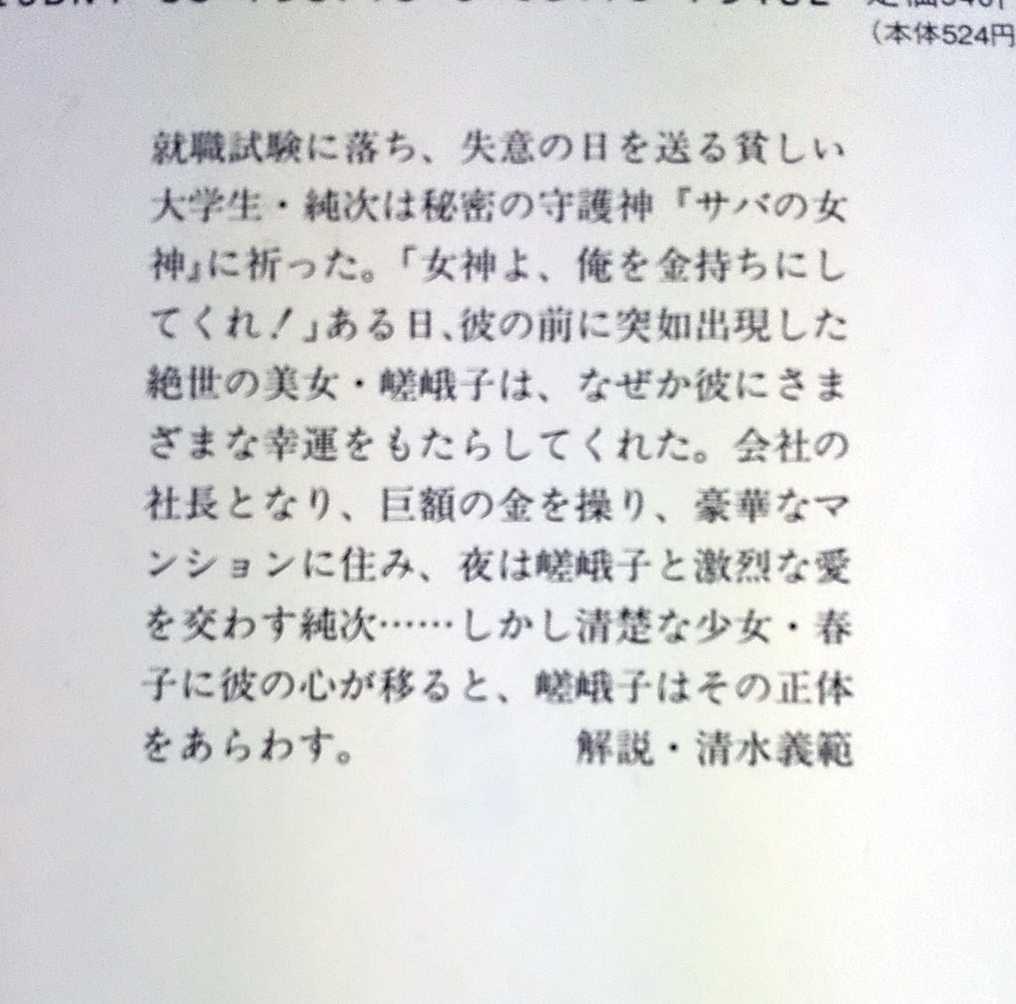 （本体524円
就職試験に落ち、失意の日を送る貧しい
大学生・純次は秘密の守護神『サバの女
神』に祈った。「女神よ、俺を金持ちにし
てくれ！」ある日、彼の前に突如出現した
絶世の美女・嵯峨子は、なぜか彼にさま
ざまな幸運をもたらしてくれた。会社の
社長となり、巨額の金を操り、豪華なマ
ンションに住み、夜は嵯峨子と激烈な愛
を交わす純次……しかし清楚な少女・春
子に彼の心が移ると、嵯峨子はその正体
をあらわす。　解説・清水義範